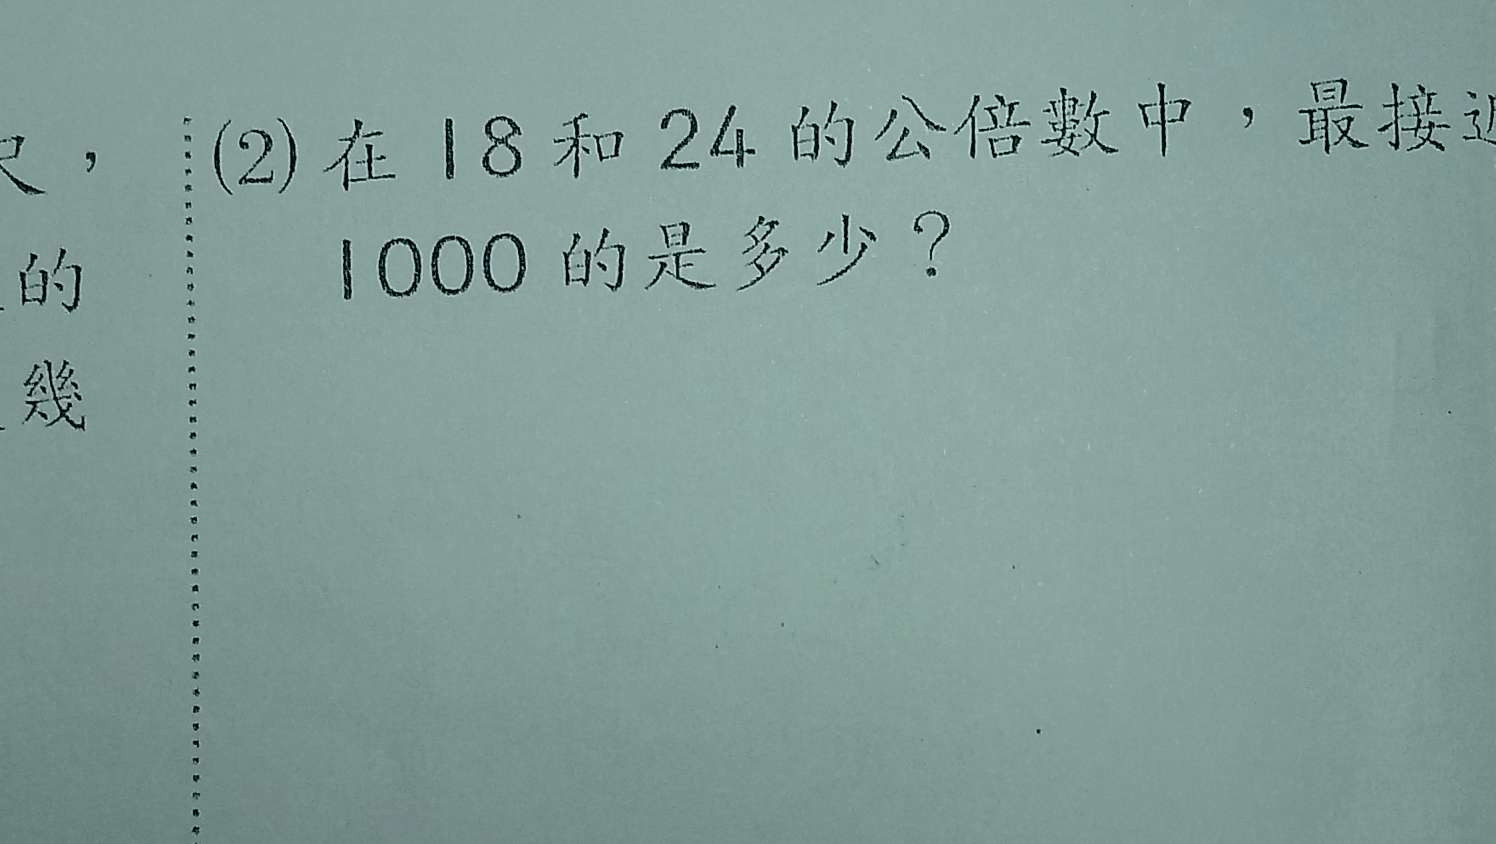 ，
的
幾
(2) 在 18 和 24 的公倍數中，最接近
1000 的是多少？